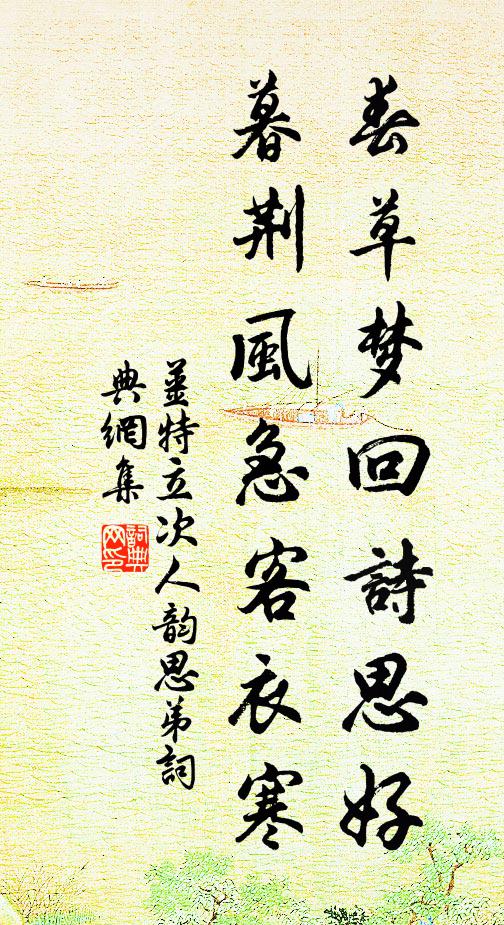 春草梦回詩思好
暮荆風急客衣寒
姜特立次人韵思弟詞
典網集
詞典网印